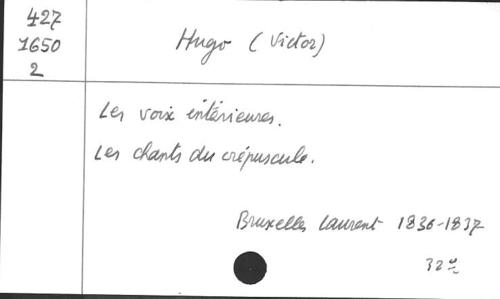 427
1650
2
Hugo (Victor)
Les voix intérieures.
Les chants du crépuscule.
Bruxelles Laurent 1836-1837
32º